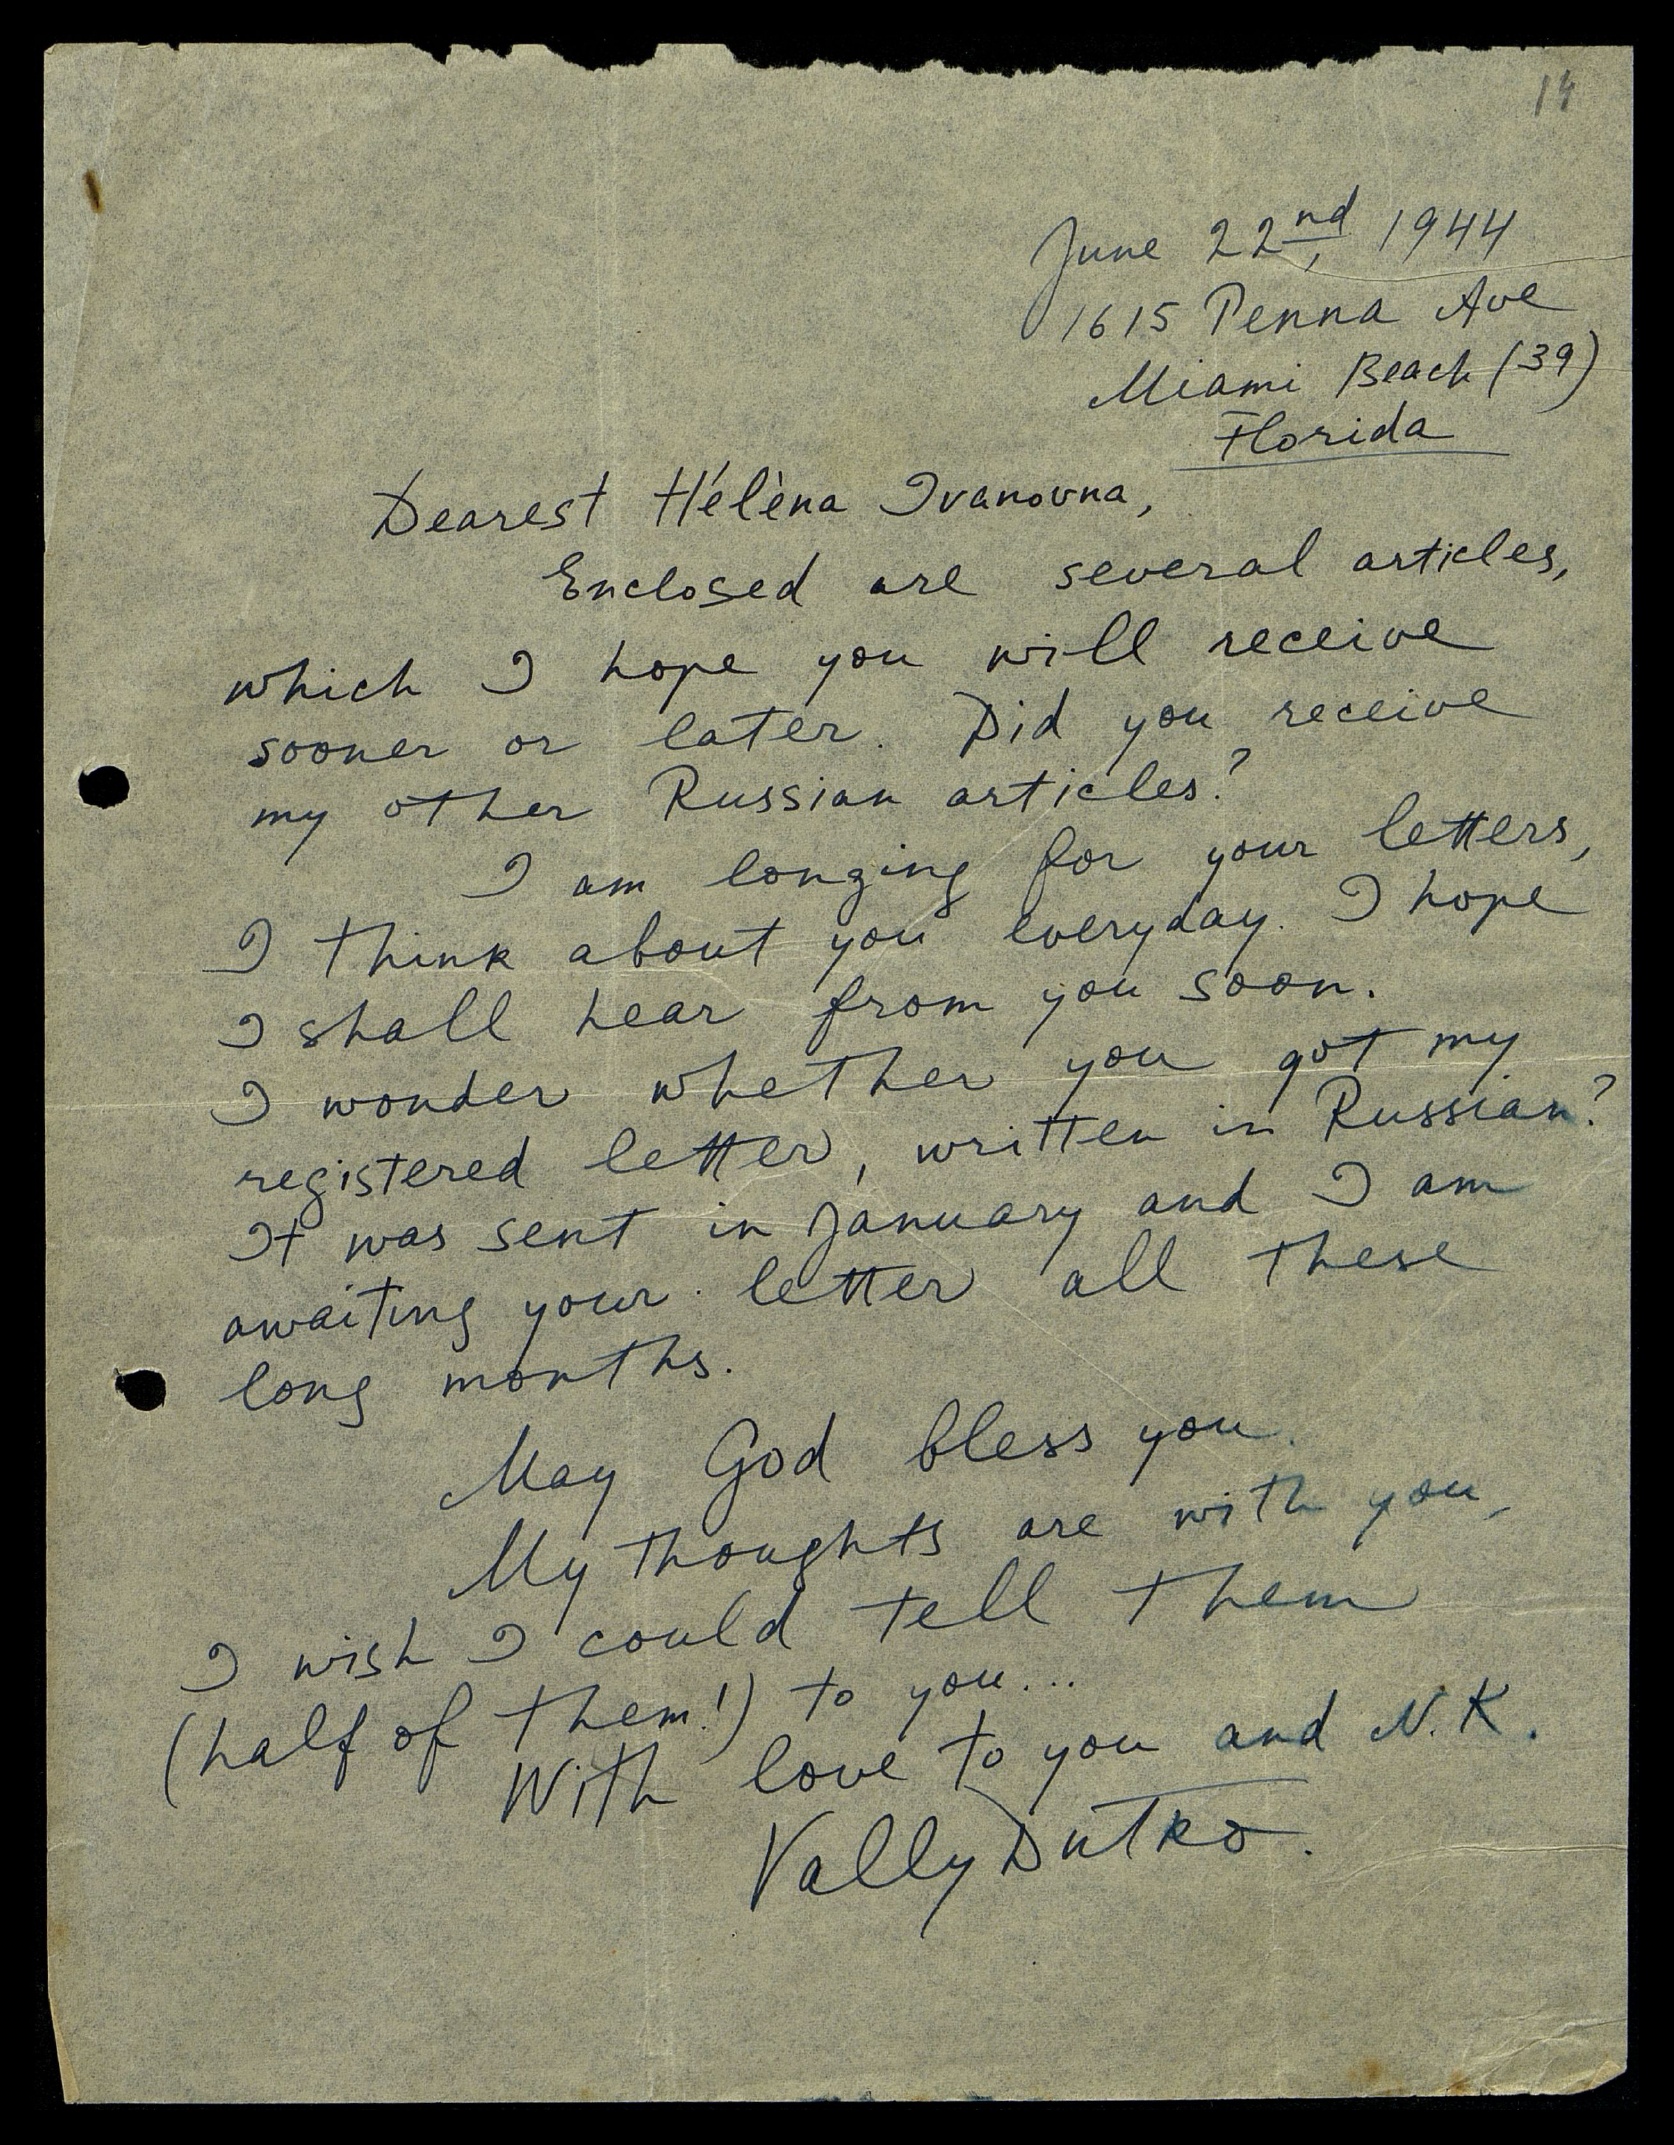 14
June 22nd, 1944
1615 Penna Ave
Miami Beach (39)
Florida
Dearest Hélèna Ivanovna,
Enclosed are several articles,
which I hope you will receive
sooner or later. Did you receive
my other Russian articles?
I am longing for your letters,
I think about you everyday. I hope
I shall hear from you soon.
I wonder whether you got my
registered letter, written in Russian?
It was sent in January and I am
awaiting your letter all these
long months.
May God bless you.
My thoughts are with you,
I wish I could tell them
(half of them!) to you...
With love to you and N.K.
Vally Dutko.